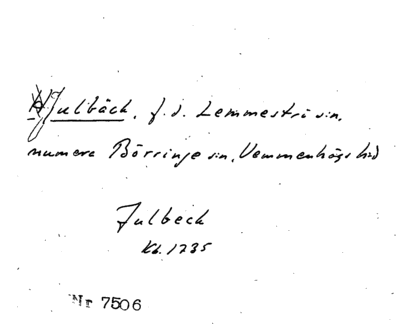 Julbäck, f.d. Lemmeströ sn.
numera Börringe sn, Vemmenhögs hd
Julbeck
Kb. 1735
Nr 7506